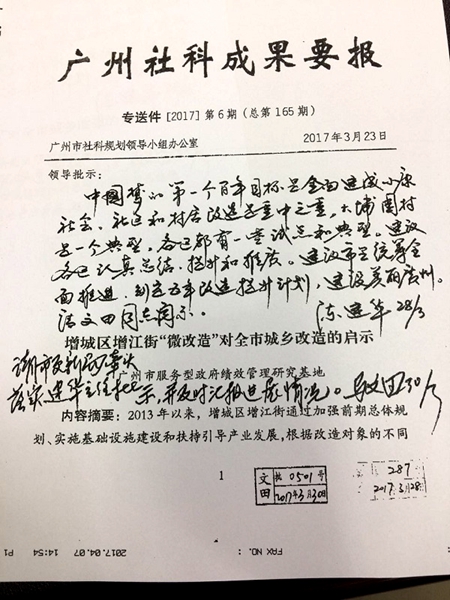 广州社科成果要报
专送件 [2017] 第 6 期 (总第 165 期)
广州市社科规划领导小组办公室 2017 年 3 月 23 日
领导批示:
中国梦的第一个百年目标是全面建成小康
社会、社区和村居改造是重中之重。大埔围村
是一个典型。各区都有一些试点和典型。建议
各区认真总结、提升和推广。建议市里统筹全
面推进。制定五年改造提升计划,建设美丽广州。
请文田同志阅示。 陈建华 28/3
增城区增江街“微改造”对全市城乡改造的启示
请市更新局牵头
广州市服务型政府绩效管理研究基地
落实建华主任批示,并及时汇报进展情况。 30/3
内容摘要: 2013 年以来,增城区增江街通过加强前期总体规
划、实施基础设施建设和扶持引导产业发展,根据改造对象的不同
1
文田 0501 号
2017年3月30日
287
2017.3.28
2017.04.07 14:54 FAX NO. : P1